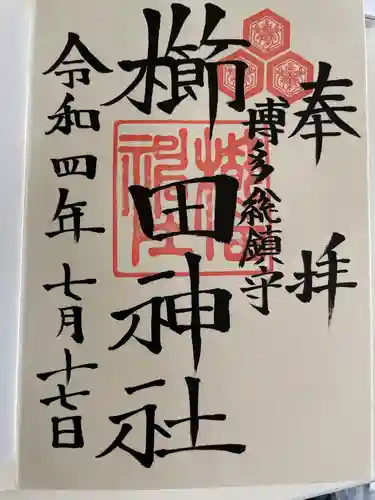 奉拝
博多総鎮守
櫛田神社
令和四年七月十七日